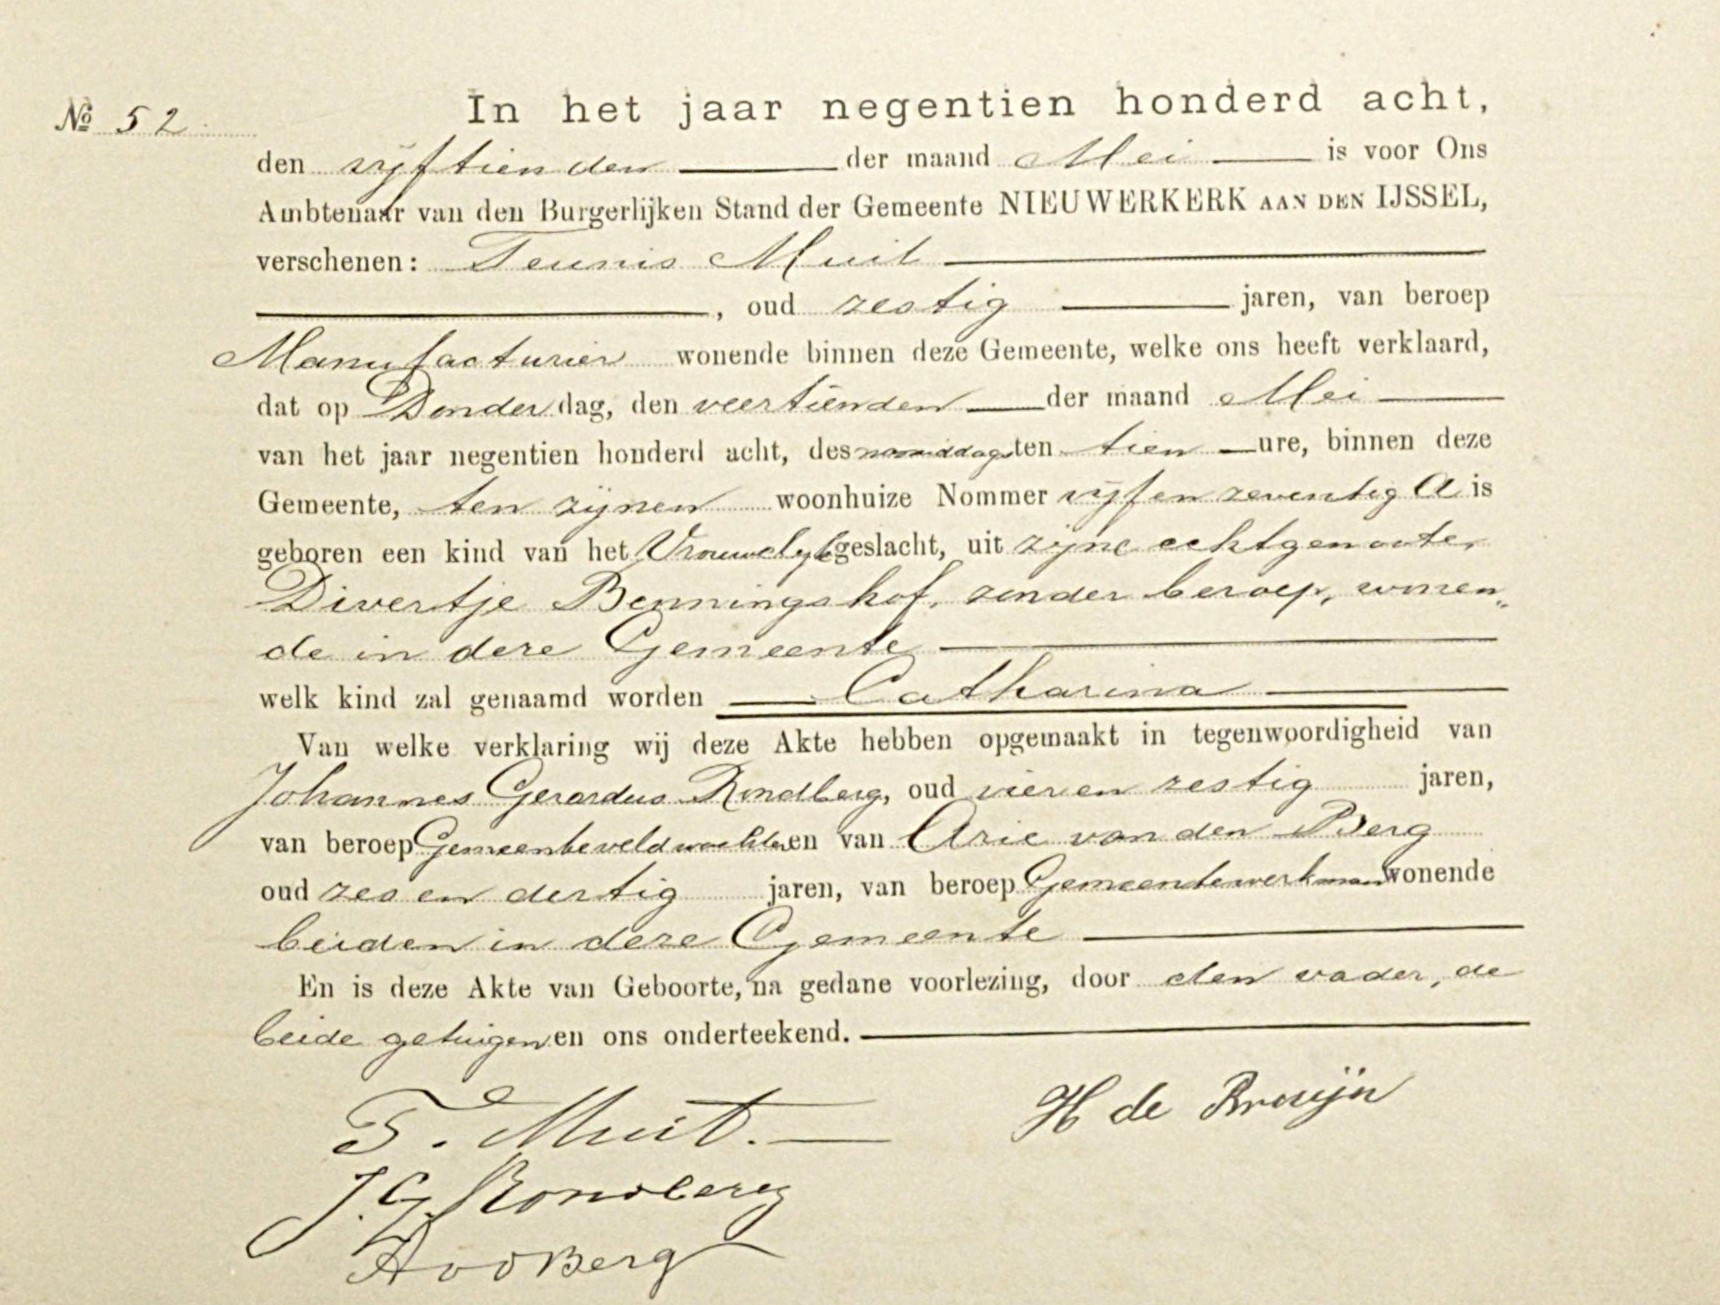 No 52
In het jaar negentien honderd acht,
den vijftienden der maand Mei is voor Ons
Ambtenaar van den Burgerlijken Stand der Gemeente NIEUWERKERK AAN DEN IJSSEL,
verschenen: Teunis Muit
, oud zestig jaren, van beroep
Manufacturier wonende binnen deze Gemeente, welke ons heeft verklaard,
dat op Donderdag, den veertienden der maand Mei
van het jaar negentien honderd acht, des ten tien ure, binnen deze
Gemeente, ten zijnen woonhuize Nommer vijf en zeventig A is
geboren een kind van het Vrouwelijk geslacht, uit zijne echtgenoote,
Divertje Benningshof, zonder beroep, wonen„
de in deze Gemeente
welk kind zal genaamd worden Catharina
Van welke verklaring wij deze Akte hebben opgemaakt in tegenwoordigheid van
Johannes Gerardus Rondberg, oud vier en zestig jaren,
van beroep Gemeenteveldwachter en van Arie van den Berg
oud zes en dertig jaren, van beroep Gemeentewerkman wonende
beiden in deze Gemeente
En is deze Akte van Geboorte, na gedane voorlezing, door den vader, de
beide getuigen en ons onderteekend.
T. Muit. H de Bruijn
J. G. Rondberg
A v d Berg